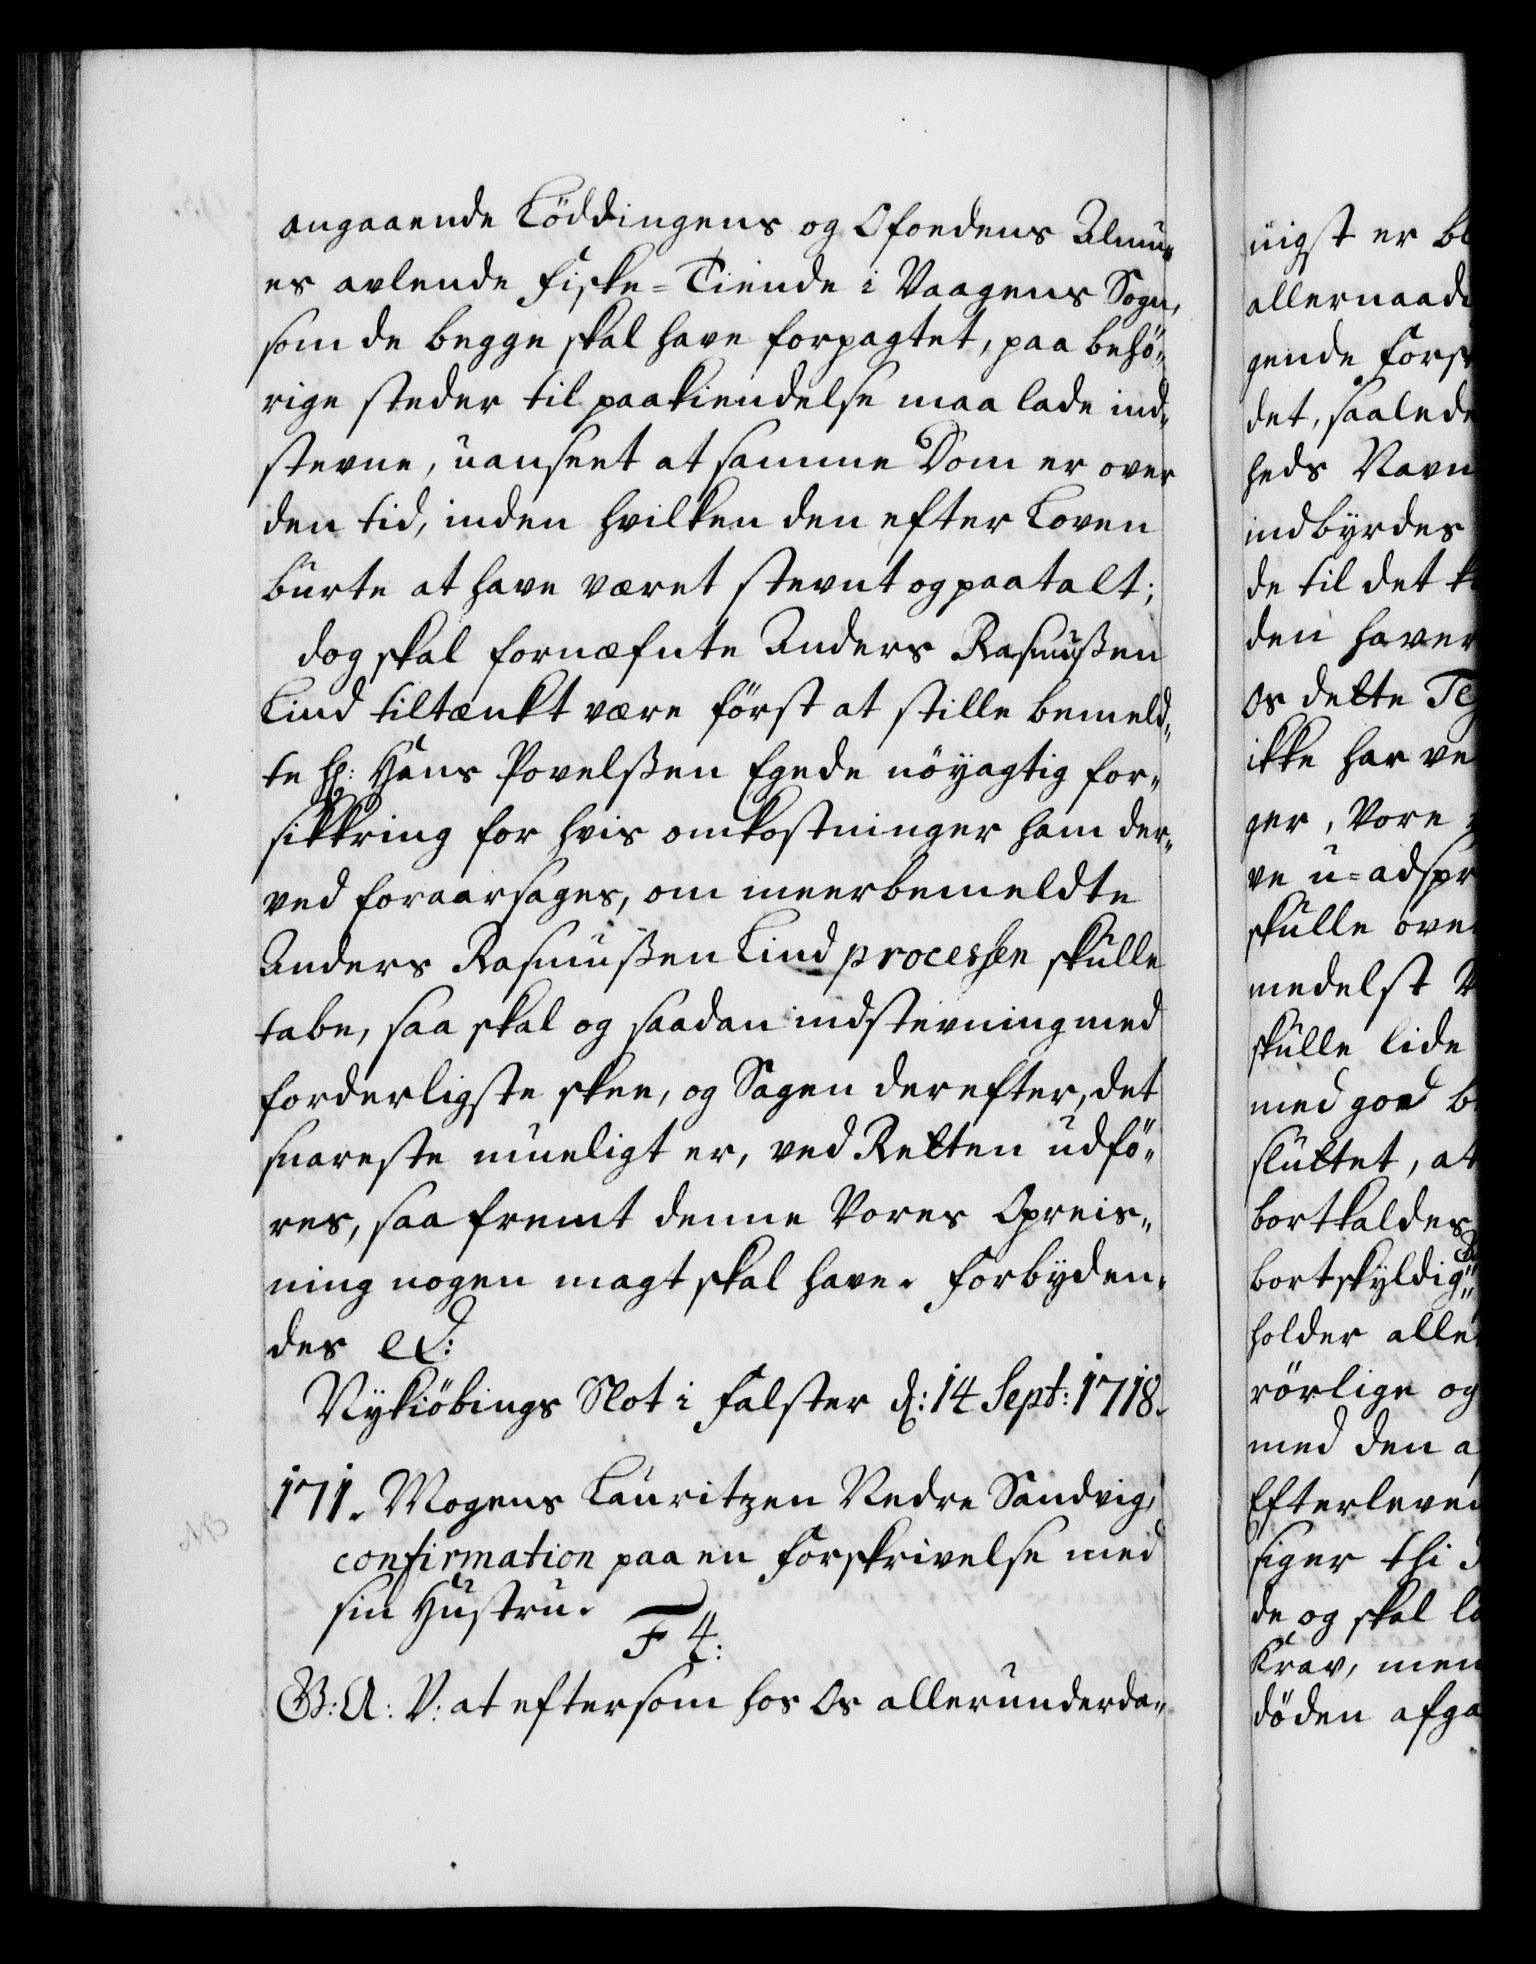 angaaende Löddingens og Ofoedens Almu¬
es avlende Fiske=Tiende i Vaagens Sogn,
som de begge skal have forpagtet, paa behö¬
rige steder til paakiendelse maa lade ind¬
stevne, uanseet at samme Dom er over
den tid, inden hvilken den efter Loven
burte at have været stevnt og paatalt;
dog skal fornæfnte Anders Rasmußen
Lind tiltænkt være först at stille bemeld¬
te Hr: Hans Povelßen Egede nöyagtig for¬
sikkring for hvis omkostninger ham der¬
ved foraarsages, om meerbemeldte
Anders Rasmußen Lind processen skulle
tabe, saa skal og saadan indstevning med
forderligste skee, og Sagen derefter, det
snareste mueligt er, ved Retten udfö¬
res, saa fremt denne Vores Opreis¬
ning nogen magt skal have. Forbyden¬
des etc:
Nykiöbings Slot i Falster d: 14 Sept: 1718.
171. Mogens Lauritzen Nedre Sandvig,
confirmation paa en Forskrivelse med
sin Hustru.
F 4:
G: A: V: at eftersom hos Os allerunderda¬
nigst er be
allernaadi
gende Forsk
det, saalede
heds Navn
indbyrdes
de til det k
den haver
Os dette Te
ikke har ve
ger, Vore
ve u=adspr
skulle ove
medelst
skulle lide
med god b
sluttet, at
bortkaldes
bortskyldig
holder alle
rörlige og
med den a
Efterleven
siger thi d
de og skal lo
Krav, men
döden afga